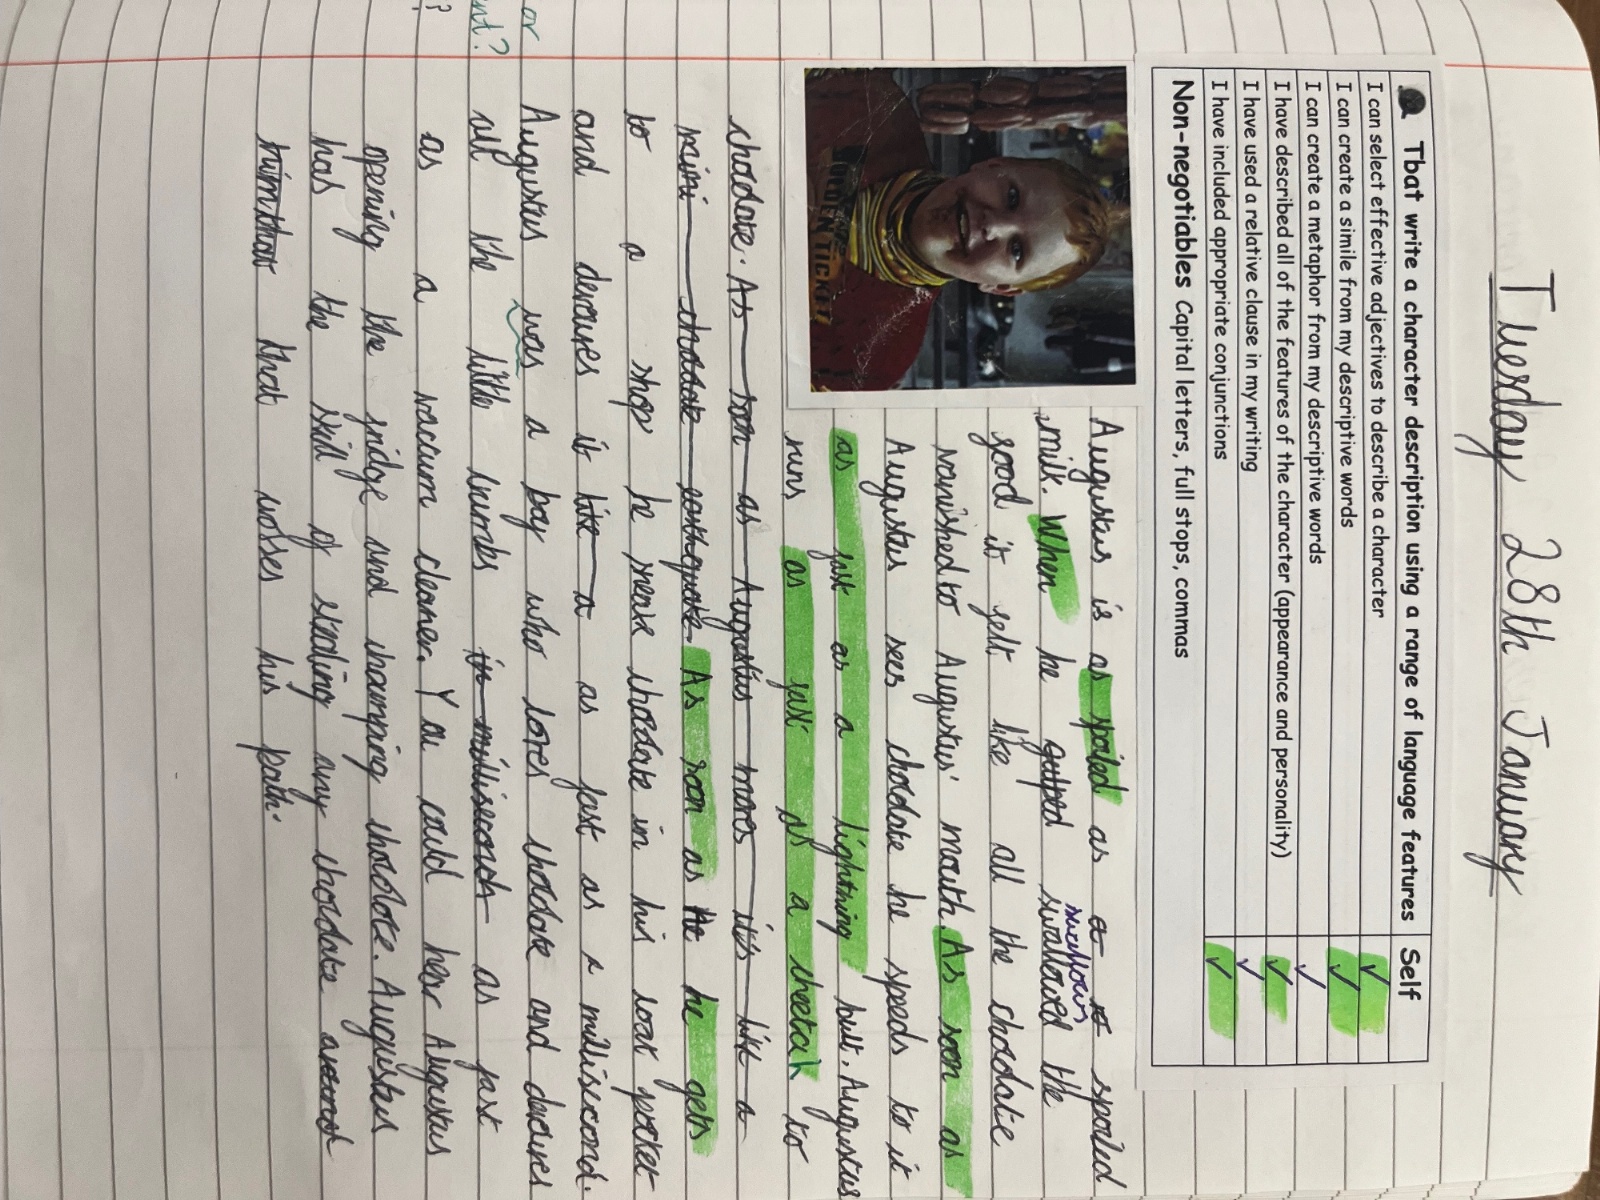 Tuesday 28th January
Tbat write a character description using a range of language features Self
I can select effective adjectives to describe a character ✓
I can create a simile from my descriptive words ✓
I can create a metaphor from my descriptive words ✓
I have described all of the features of the character (appearance and personality) ✓
I have used a relative clause in my writing ✓
I have included appropriate conjunctions ✓
Non-negotiables Capital letters, full stops, commas
GOLDEN TICKET
Augustus is as spoiled as a spoiled
swallows
milk. When he gulped swallowed the
good it felt like all the chocolate
vanished to Augustus' mouth. As soon as
Augustus sees chocolate he speeds to it
as fast as a lightning bult. Augustus
runs as fast as a cheetah to
chocolate. As soon as Augustus moves it's like a
mini chocolate earthquake. As soon as he he gets
to a shop he sneak chocolate in his coat pocket
and devoures it like a as fast as a millisecond.
Augustus was a boy who loves chocolate and devoures
all the little crumbs in milliseconds as fast
as a vacum cleaner. You could hear Augustus
opening the fridge and chomping chocolate. Augustus
has the skill of stealing any chocolate around
him that that crosses his path.
or
ent?
?